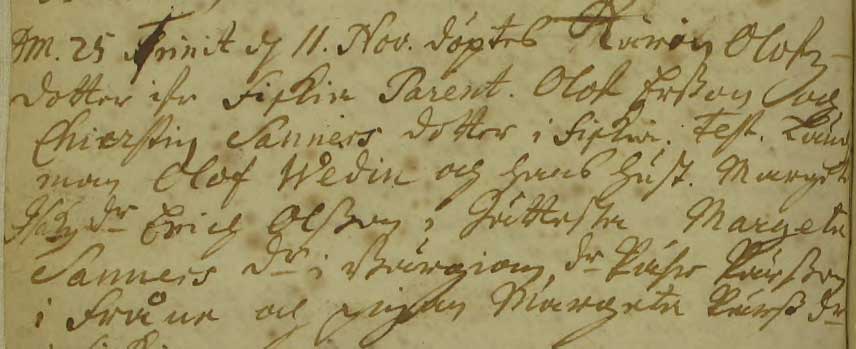 Dm. 25 Trinit d 11. Nov. döptes Kärin Olofz
dotter ifr Fiskia Parent. Olof Ersson och
Chierstin Sanners dotter i Fiskia. Test. Länß
man Olof Wedin och hans hust. Margeta
dr Erich Olsson i Margeta
Sanners dr i dr Pähr Pärsson
i Fråne och pigan Margeta Pärß dr